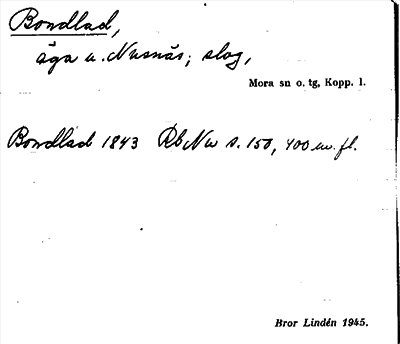 Bondlad,
äga u. Nusnäs; slog,
Mora sn o. tg, Kopp. l.
Bondlad 1843 Rb Nw s. 150, 400 m. fl.
Bror Lindén 1945.